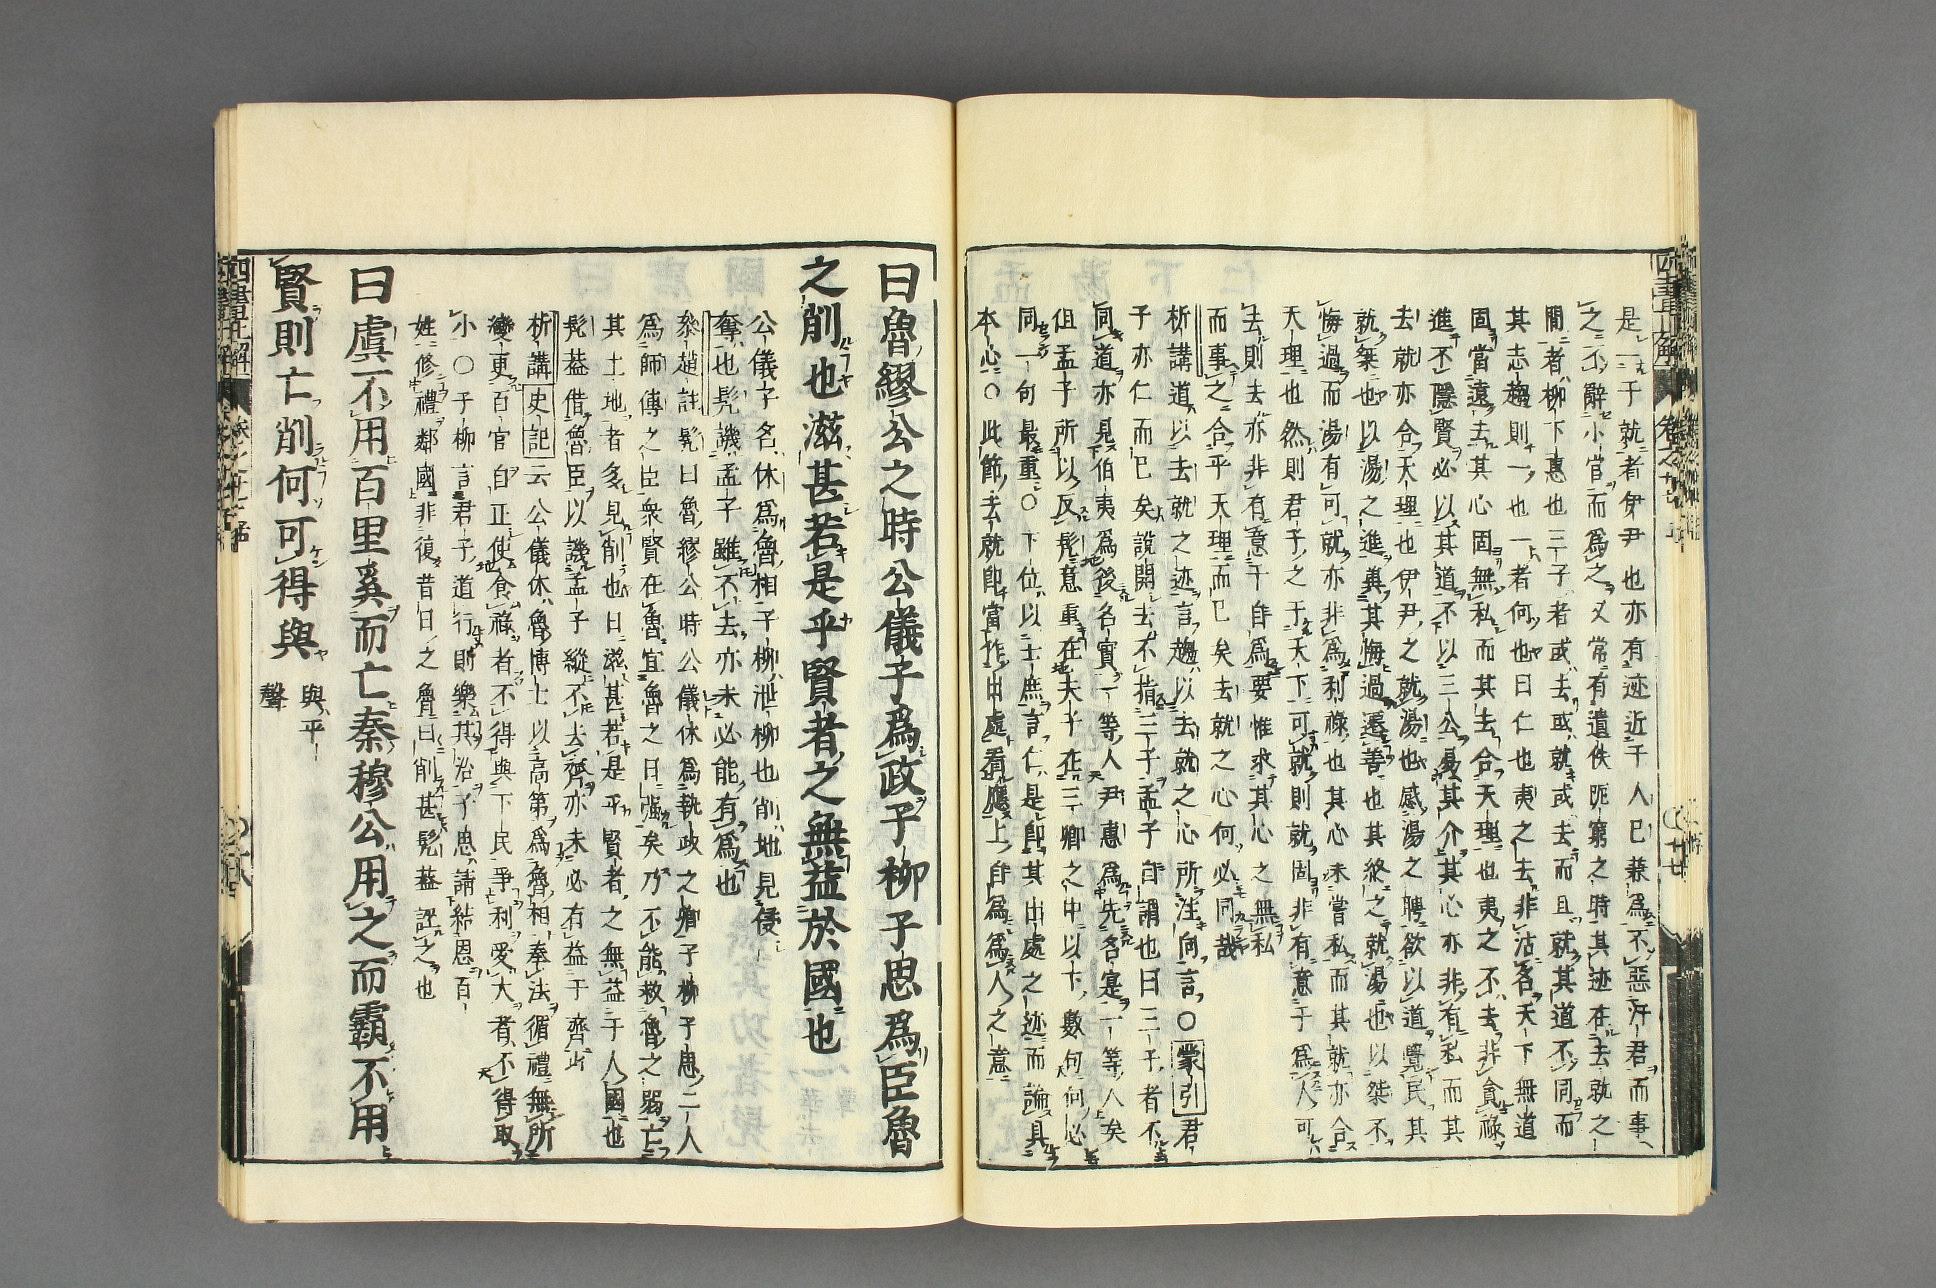 是一于就者伊尹也亦有迹近于人已兼爲不惡汙君而事
之不辭小官而爲之又常有遺佚阨窮之時其迹在去就之
間者柳下惠也三子者或去或就或去而且就其道不同而
其志趨則一也一者何也曰仁也夷之去非沽名天下無道
固當遠去其心固無私而其去合天理也夷之不去非貪祿
進不隱賢必以其道不以三公易其介其心亦非有私而其
去就亦合天理也伊尹之就湯也感湯之聘欲以道覺民其
就桀也以湯之進冀其悔過遷善也其終之就湯也以桀不
悔過而湯有可就亦非爲利祿也其心未嘗私而其就亦合
天理也然則君子之于天下可就則就固非有意于爲人可
去則去亦非有意于自爲要惟求其心之無私
而事之合乎天理而已矣去就之心何必同哉
析講道以去就之迹言趨以去就之心所注向言○蒙引君
子亦仁而已矣說開去不指三子孟子自謂也曰三子者不
同道亦見伯夷爲後名實一等人尹惠爲先名實一等人矣
但孟子所以反髡意重在夫子在三卿之中以下數何何必
同一句最重○下位以士庶言仁是卽其出處之迹而論其
本心○此節去就卽當作出處看應上自爲爲人之意
曰魯繆公之時公儀子爲政子柳子思爲臣魯
之削也滋甚若是乎賢者之無益於國也
公儀子名休爲魯相子柳泄柳也削地見侵
奪也髡譏孟子雖不去亦未必能有爲也
叅趙註髡曰魯繆公時公儀休爲執政之卿子柳子思二人
爲師傅之臣衆賢在魯宜魯之日强矣乃不能救魯之弱亡
其土地者多見削也曰滋甚若是乎賢者之無益于人國也
髡葢借魯臣以譏孟子縱不去齊亦未必有益于齊㱔
析講史記云公儀休魯博士以高第爲魯相奉法循禮無所
變更百官自正使食祿者不得與下民爭利受大者不得取
小○子柳言君子道行則樂其治子思請結恩百
姓修禮鄰國非復昔日之魯曰削甚髡葢誣之也
曰虞不用百里奚而亡秦穆公用之而霸不用
賢則亡削何可得與 與平聲